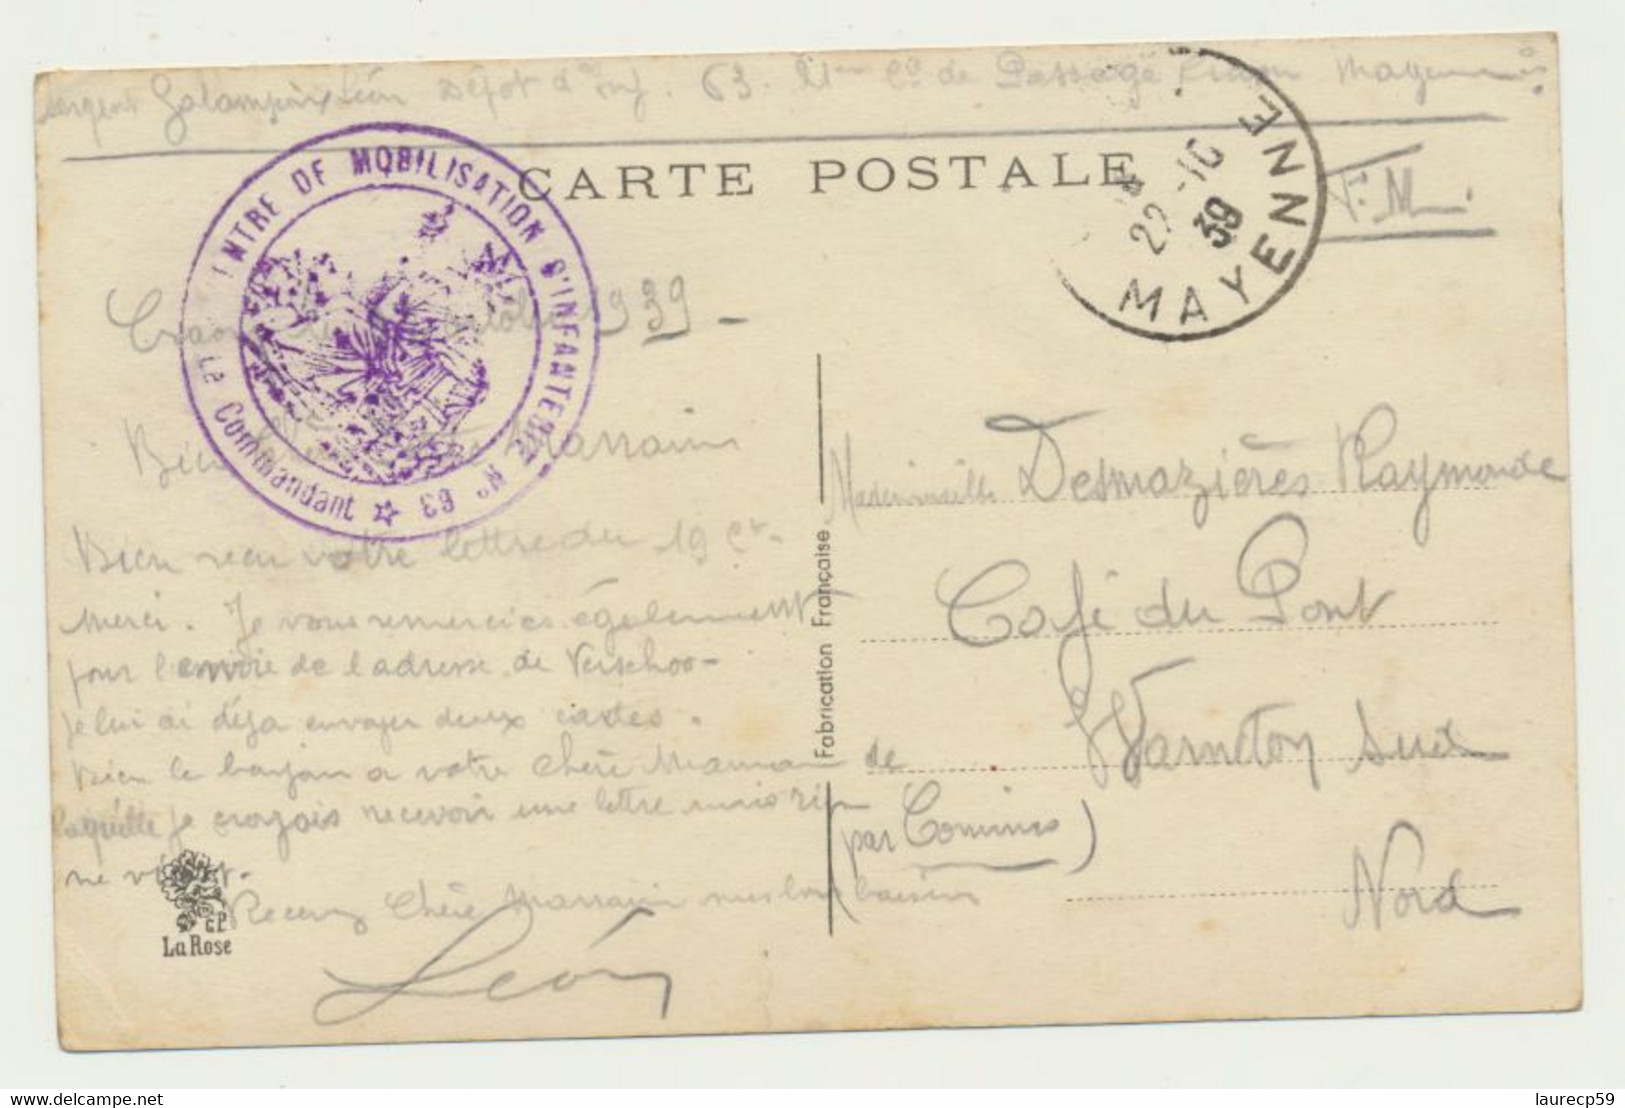 Sergent Galampoix Léon Dépôt d'Inf. 63. 21me Cie de Passage Craon Mayenne
CARTE POSTALE
F.M.
CENTRE DE MOBILISATION D'INFANTERIE N° 63
Le Commandant
MAYENNE
22 -10
39
Craon octobre 1939 -
Bien Marraine
Bien reçu votre lettre du 19 Ct.
merci. Je vous remercies également
pour l'envoie de l'adresse de Verschoo-
je lui ai déja envoyer deux cartes.
Bien le bonjour a votre chère Maman de
laquelle je croyais recevoir une lettre mais rien
ne vient.
Recevez Chère Marraine mes bons baisers
Léon
Mademoiselle Desmazières Raymonde
Café du Pont
Warneton Sud
(par Comines)
Nord
Fabrication Française
CP
La Rose
laurecp59